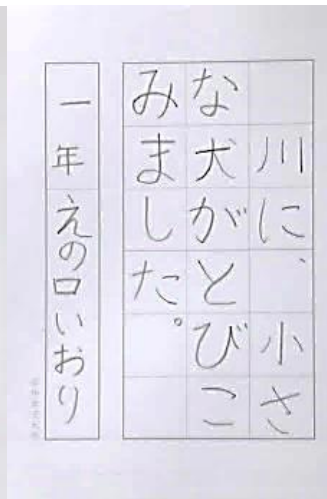 川に、小さ
な犬がとびこ
みました。
一年 えの口いおり